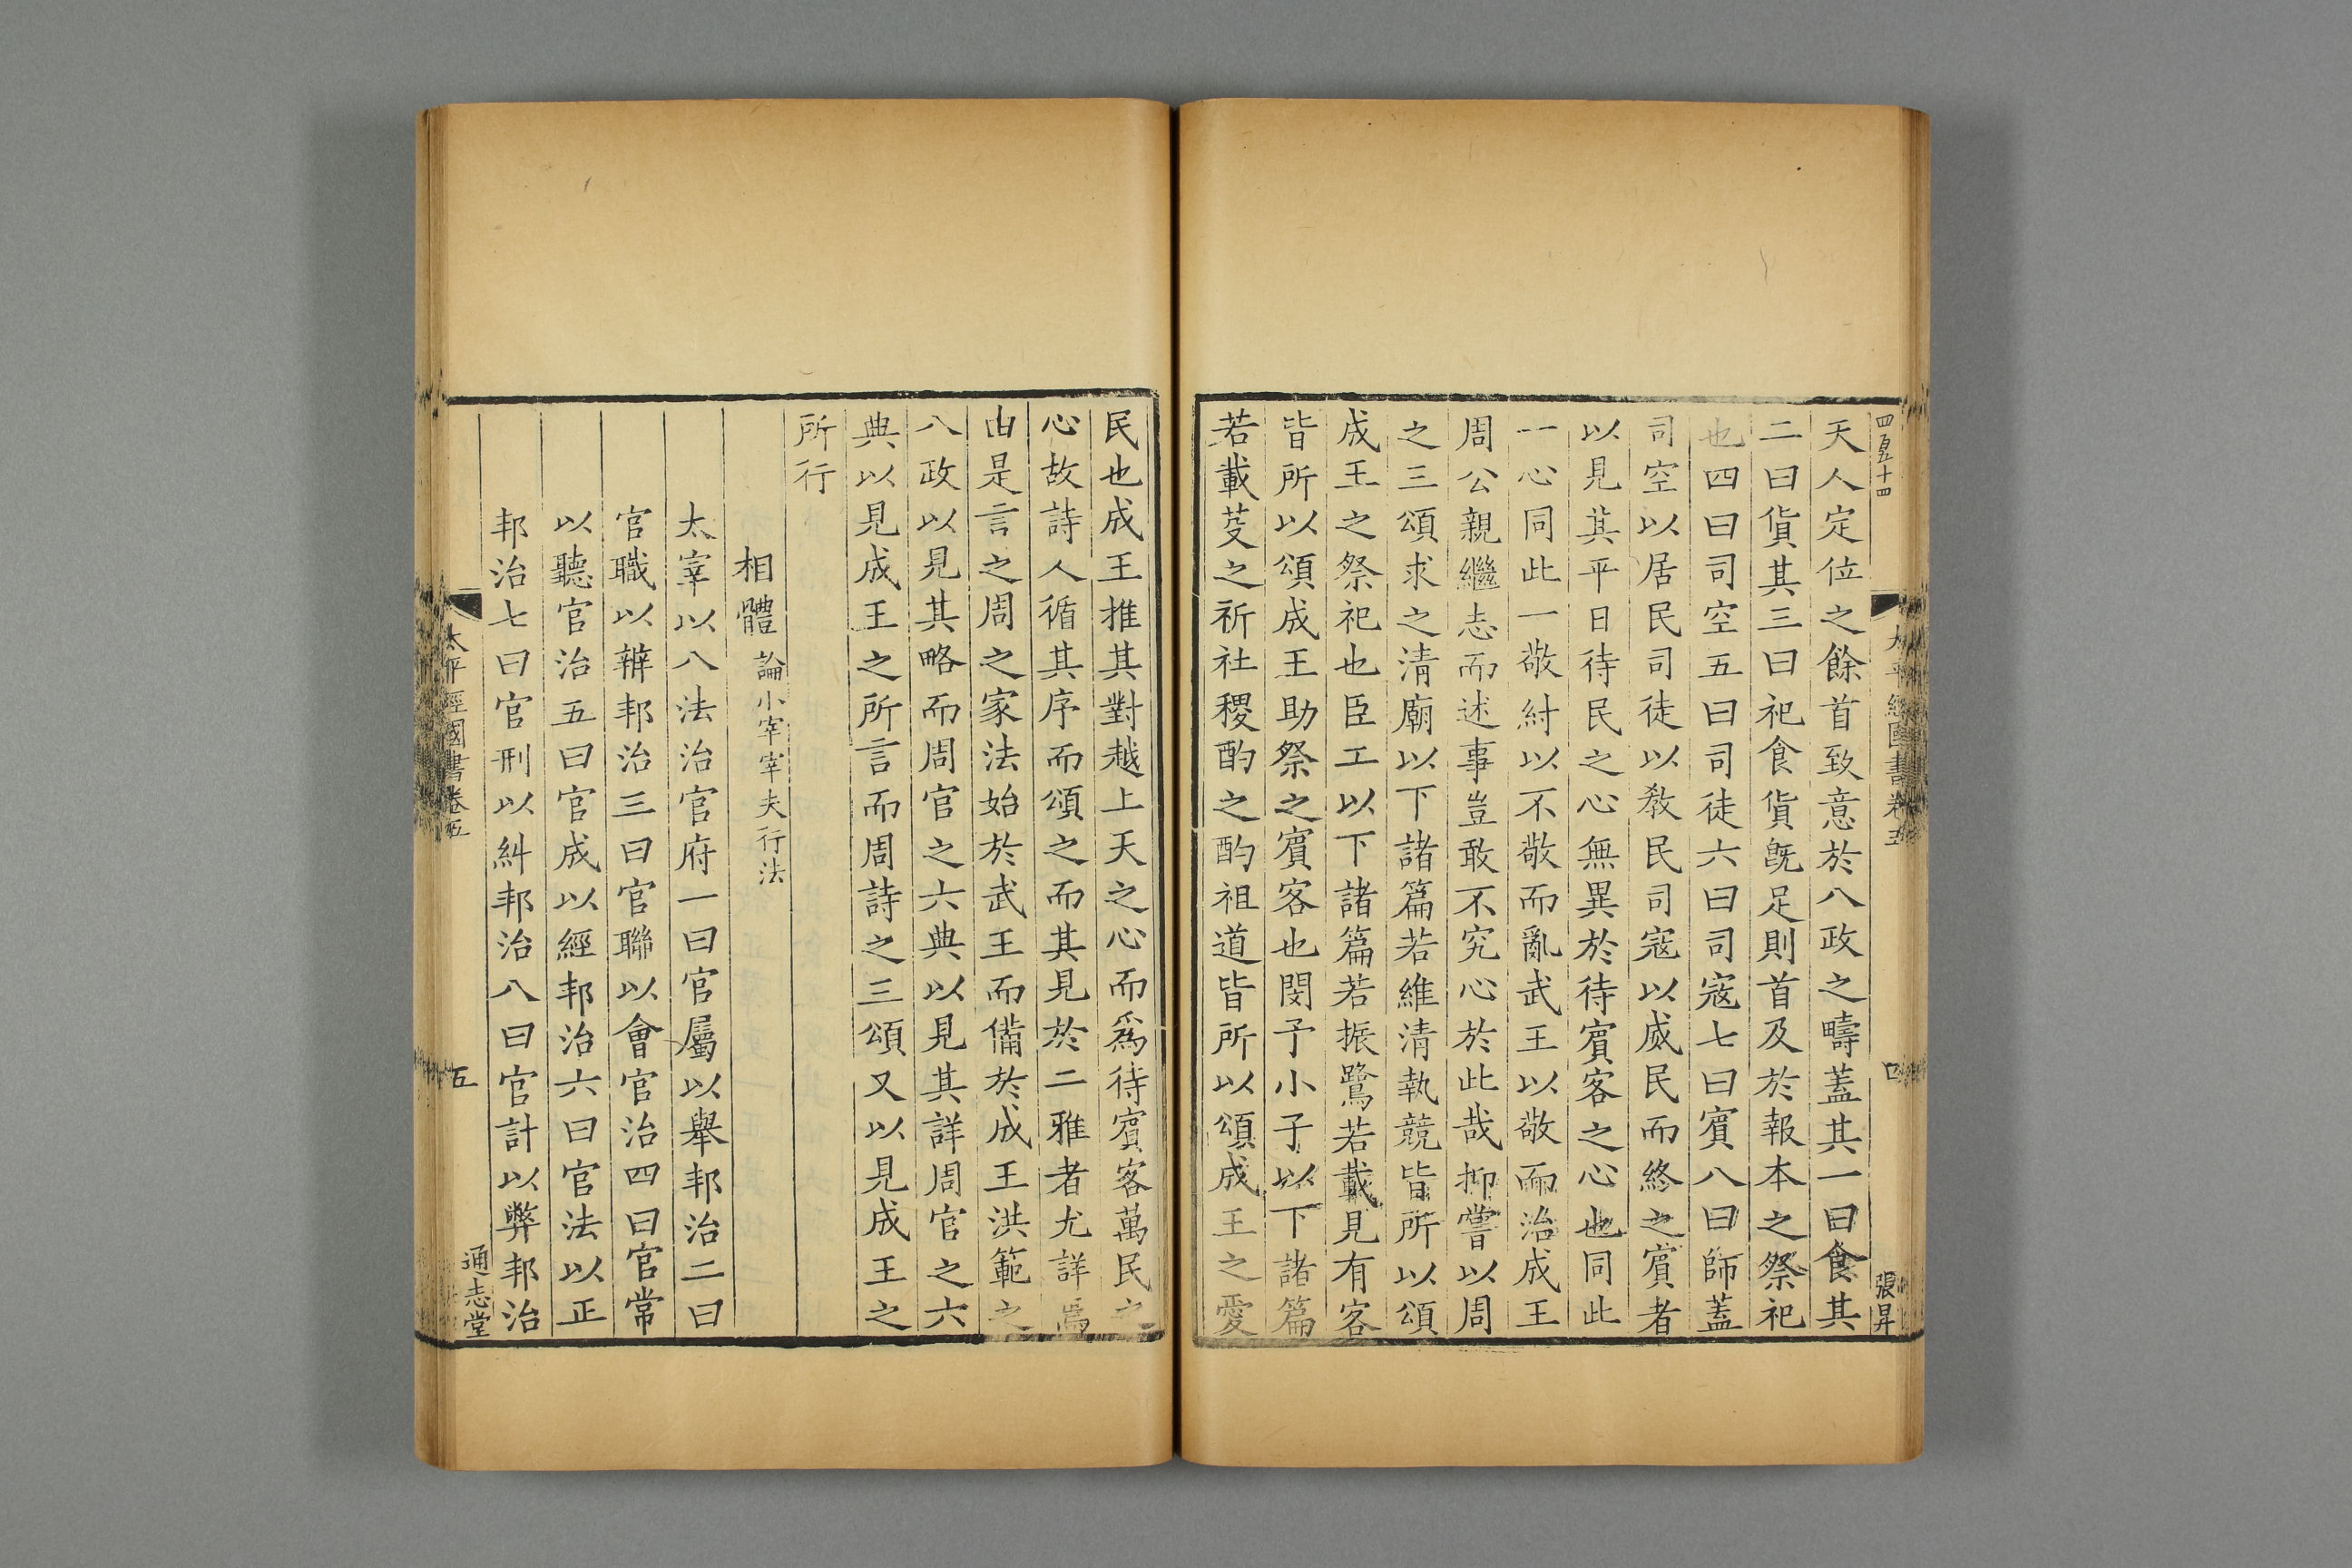 四百五十四
太平經國書卷五
四
張昇
天人定位之餘首致意於八政之疇蓋其一曰食其
二曰貨其三曰祀食貨旣足則首及於報本之祭祀
也四曰司空五曰司徒六曰司寇七曰賓八曰師蓋
司空以居民司徒以敎民司寇以威民而終之賓者
以見其平日待民之心無異於待賓客之心也同此
一心同此一敬紂以不敬而亂武王以敬而治成王
周公親繼志而述事豈敢不究心於此哉抑嘗以周
之三頌求之淸廟以下諸篇若維淸執競皆所以頌
成王之祭祀也臣工以下諸篇若振鷺若載見有客
皆所以頌成王助祭之賓客也閔予小子以下諸篇
若載芟之祈社稷酌之酌祖道皆所以頌成王之愛
民也成王推其對越上天之心而爲待賓客萬民之
心故詩人循其序而頌之而其見於二雅者尤詳焉
由是言之周之家法始於武王而備於成王洪範之
八政以見其略而周官之六典以見其詳周官之六
典以見成王之所言而周詩之三頌又以見成王之
所行
相體論小宰宰夫行法
太宰以八法治官府一曰官屬以舉邦治二曰
官職以辨邦治三曰官聯以會官治四曰官常
以聽官治五曰官成以經邦治六曰官法以正
邦治七曰官刑以糾邦治八曰官計以弊邦治
太平經國書卷五
五
通志堂